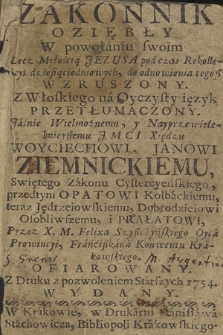 ZAKONNIK
OZIĘBŁY
W powołaniu swoim
Lecz Miłością JEZUSA podczas Rekolle-
kcyi dziesięciodniowych, do odnowienia tegoż
WZRUSZONY.
Z Włoskiego ná Oyczysty ięzyk
PRZETŁUMACZONY.
Jáśnie Wielmożnemu, y Nayprzewiele-
bnieyszemu JMCI Xiędzu
WOYCIECHOWI, JANOWI
ZIEMNICKIEMU,
Swiętego Zákonu Cystercyeńskiego,
przedtym OPATOWI Kołbáckiemu,
teraz Jędrzeiowskiemu, Dobrodzieiowi
Osobliwszemu, i PRAŁATOWI,
Przez X. M. Felixa Szyszczyńskiego Oycá
Prowincyi, Fránciszkáná Konwentu Krá-
kowskiego.
OFIAROWANY.
Z Druku z pozwoleniem Stárszych 1754.
WYDANY.
w Krákowie, w Drukárni Stánisłáwá
Stáchowiczá, Bibliopoli Krákowskiego.